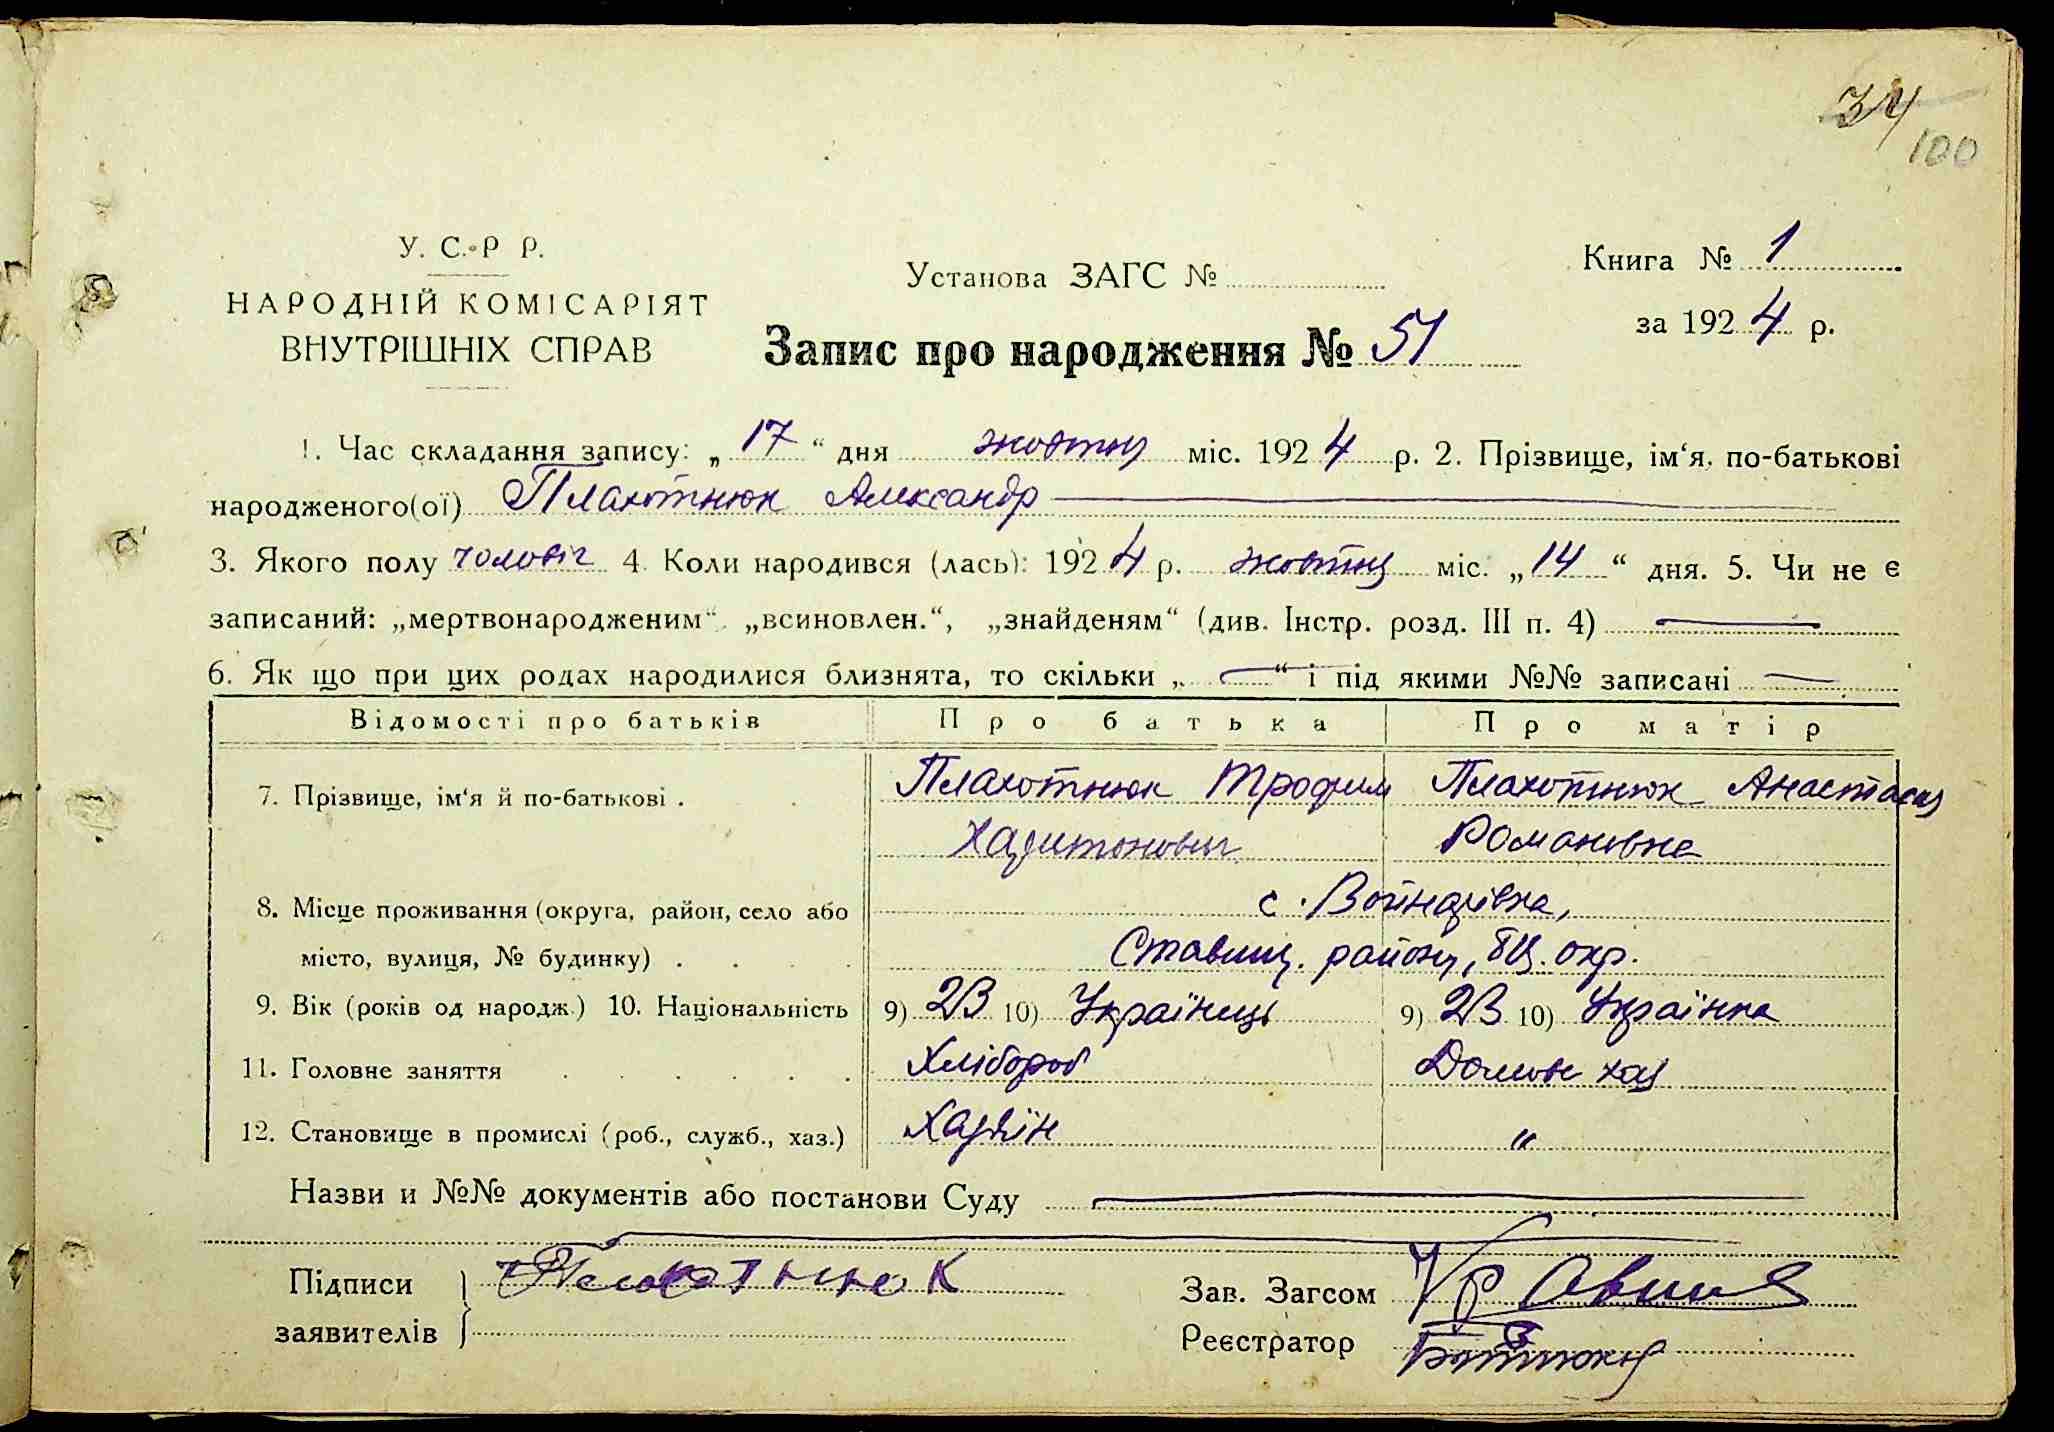 34
100
У. С. Р Р.
НАРОДНІЙ КОМІСАРІЯТ
ВНУТРІШНІХ СПРАВ
Установа ЗАГС №
Книга № 1
за 1924 р.
Запис про народження № 51
1. Час складання запису: „17“ дня жовтня міс. 1924 р. 2. Прізвище, ім‘я, по-батькові
народженого(ої) Плахотнюк Александр
3. Якого полу чоловіч 4. Коли народився (лась): 1924 р. жовтня міс. „14“ дня. 5. Чи не є
записаний: „мертвонародженим“, „всиновлен.“, „знайденям“ (див. Інстр. розд. III п. 4)
6. Як що при цих родах народилися близнята, то скільки „ “ і під якими №№ записані
Відомості про батьків Про батька Про матір
7. Прізвище, ім‘я й по-батькові . Плахотнюк Трофим Плахотнюк Анастасия
Харитонович Романовна
8. Місце проживання (округа, район, село або с. Войнарівка,
місто, вулиця, № будинку) . Ставищ. району, БЦ. окр.
9. Вік (років од народж.) 10. Національність 9) 23 10) Українець 9) 23 10) Українка
11. Головне заняття Хлібороб Домов хоз
12. Становище в промислі (роб., служб., хаз.) Хазяїн "
Назви и №№ документів або постанови Суду
Підписи Плахотнюк Зав. Загсом
заявителів Реєстратор